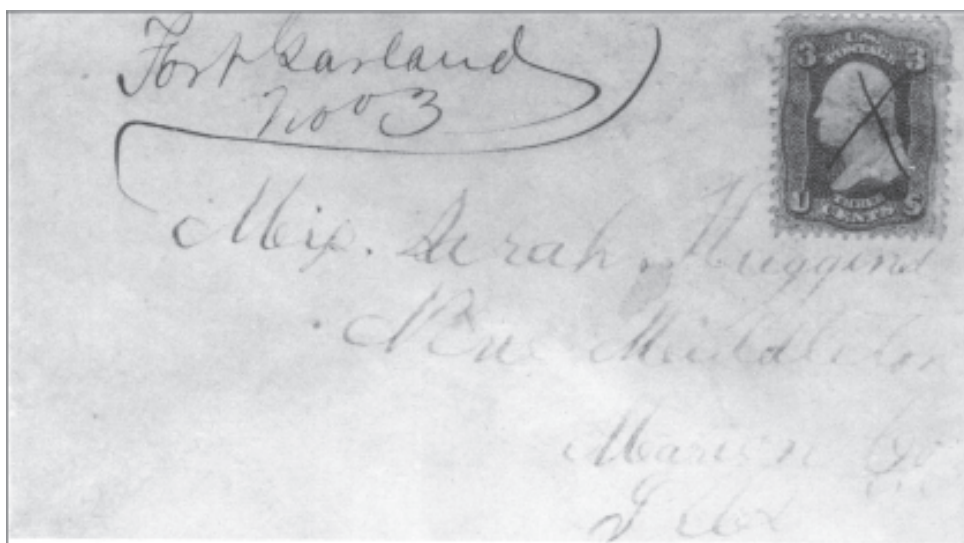 Fort Garland
Nov 3
3 U.S. 3
POSTAGE
U THREE S
CENTS
Miss. Sarah Huggins
New Middleton
Marion Co
Ills